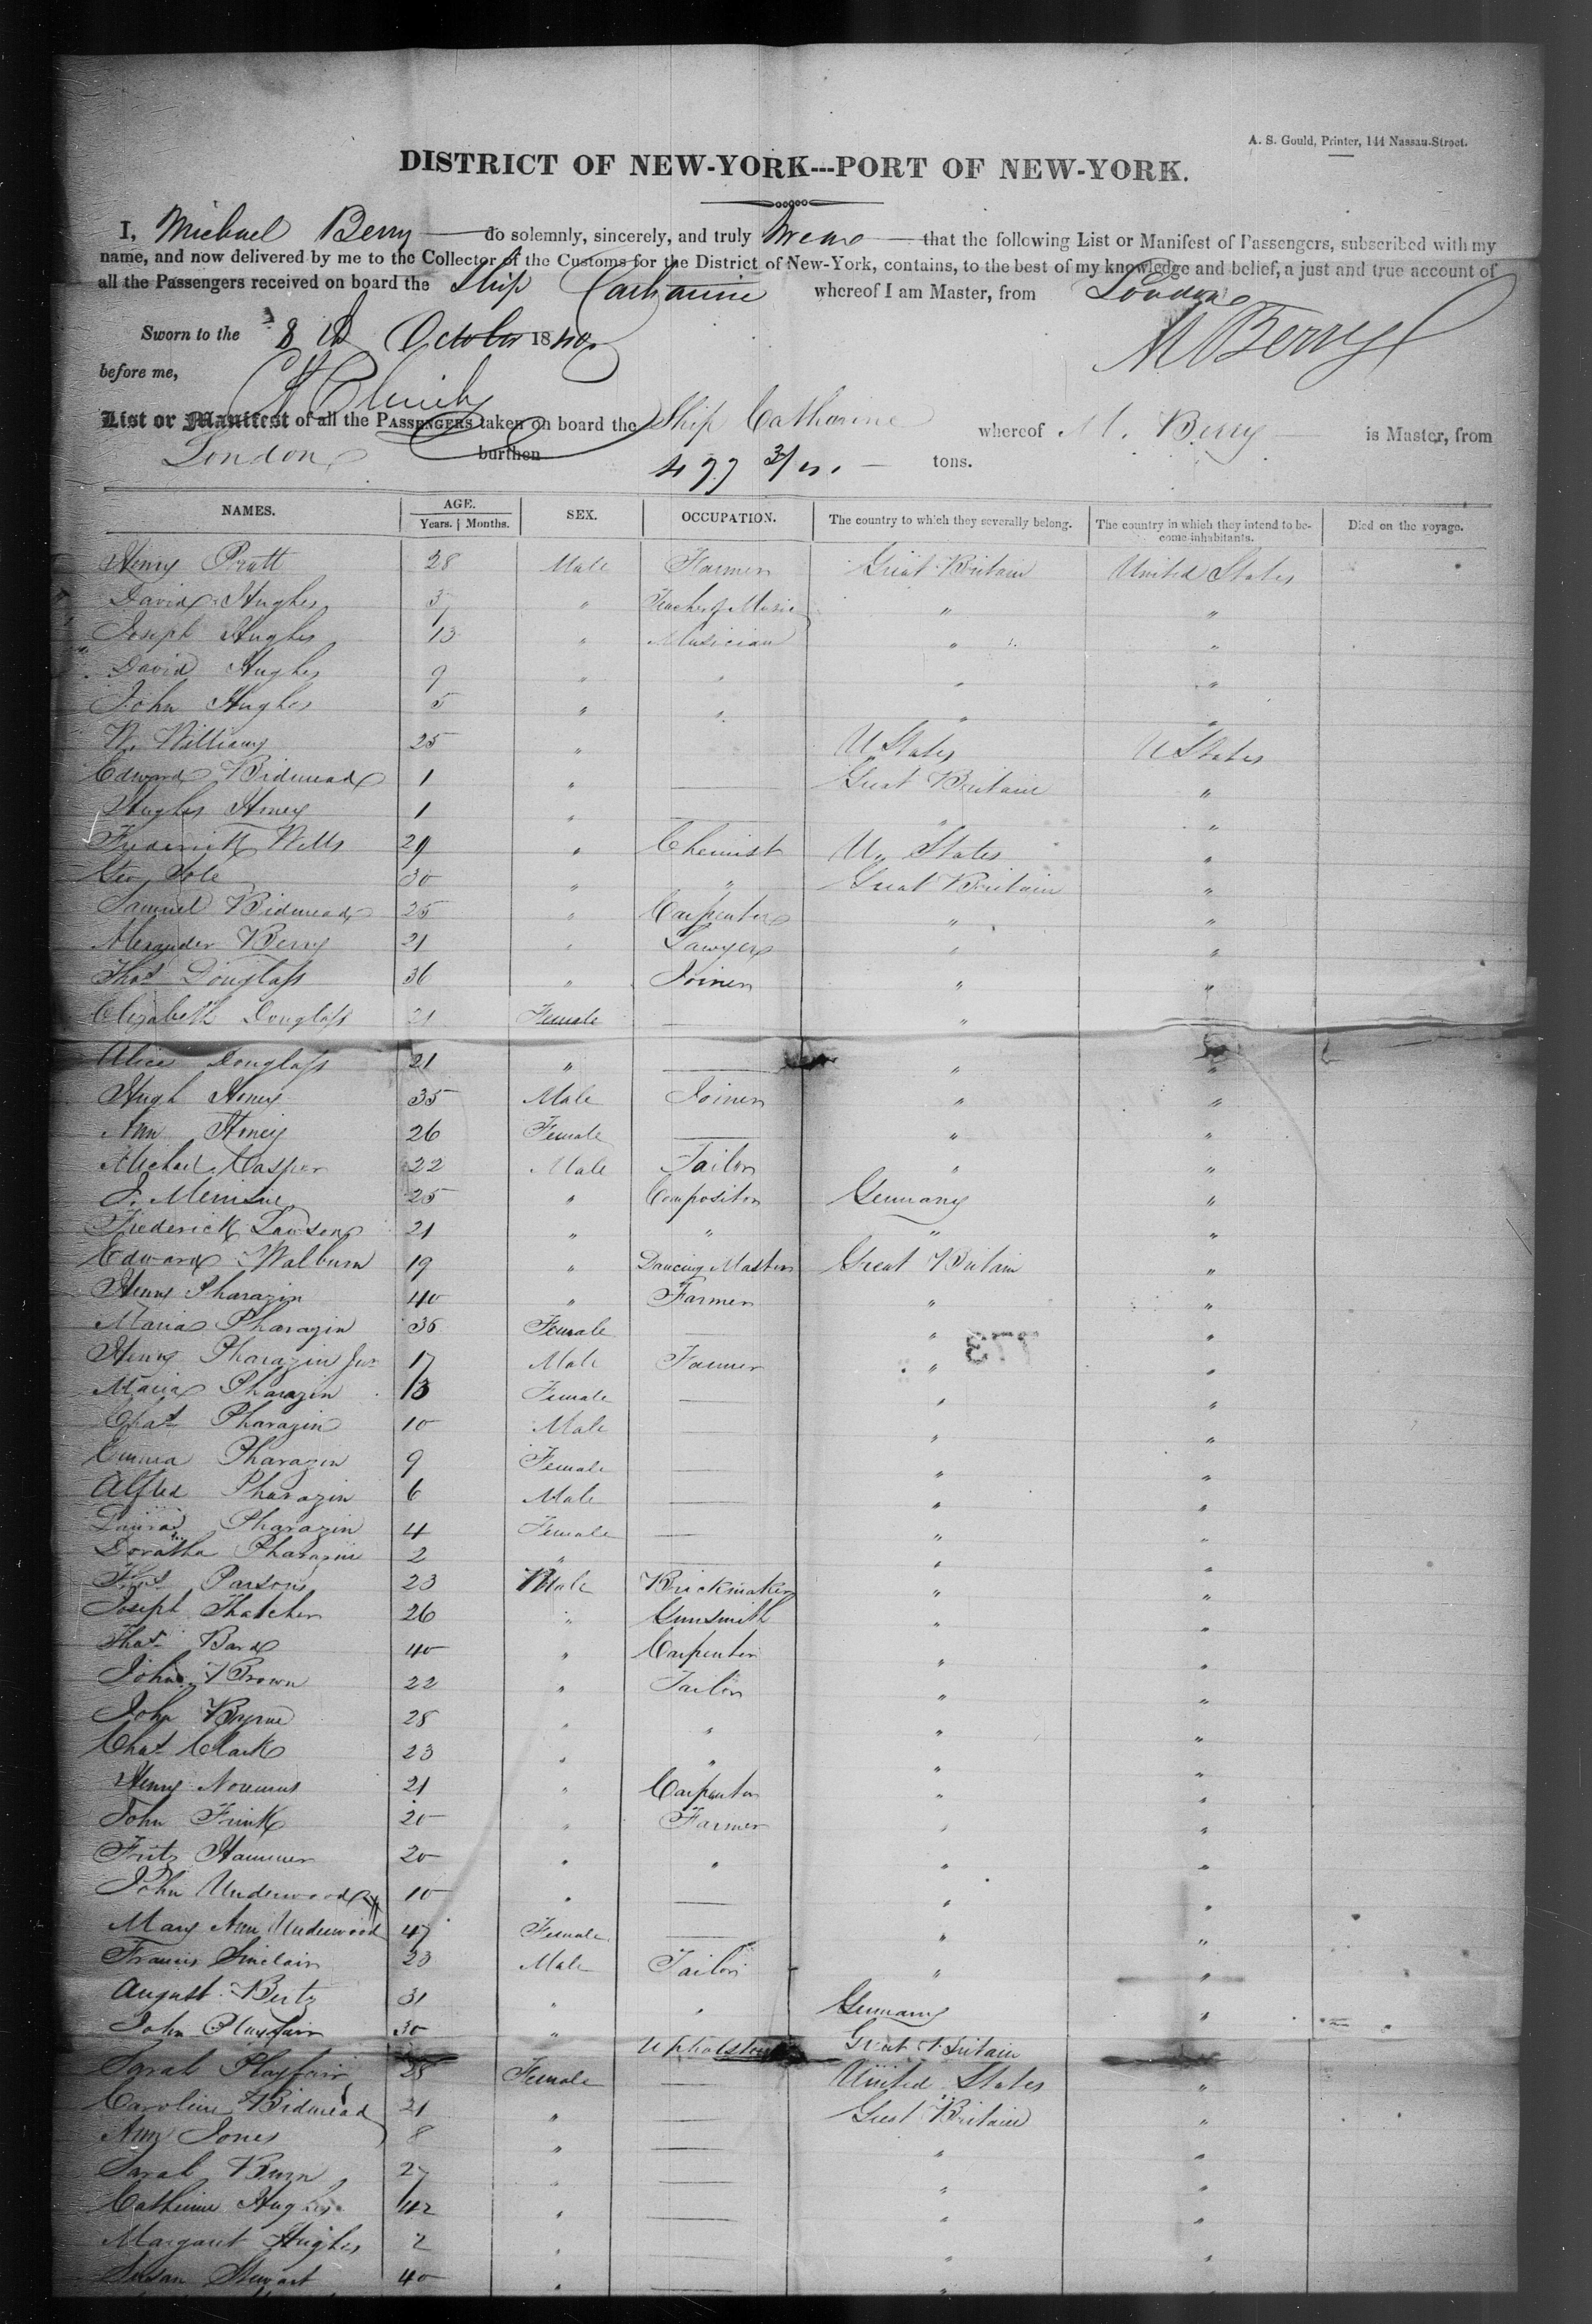 A. S. Gould, Printer, 144 Nassau-Street.
DISTRICT OF NEW-YORK---PORT OF NEW-YORK.
I, Michael Berry do solemnly, sincerely, and truly swear that the following List or Manifest of Passengers, subscribed with my
name, and now delivered by me to the Collector of the Customs for the District of New-York, contains, to the best of my knowledge and belief, a just and true account of
all the Passengers received on board the Ship Catharine whereof I am Master, from London
Sworn to the 8th October 1840
M Berry
before me,
List or Manifest of all the PASSENGERS taken on board the Ship Catharine whereof M. Berry is Master, from
London burthen tons.
NAMES. AGE. SEX. OCCUPATION. The country to which they severally belong. The country in which they intend to be- Died on the voyage.
Years. Months. come inhabitants.
Henry Pratt 28 Male Farmer Great Britain United States
David Hughes " Teacher of Music " "
Joseph Hughes 13 " Musician " "
David Hughes 9 " " " "
John Hughes 5 " " " "
W. Williams 25 " U States U States
Edward Bidmead 1 " Great Britain "
Hughes Honey 1 " " "
Frederick Wells 29 " Chemist U. States "
Geo Sole 30 " " Great Britain "
Samuel Bidmead 25 " Carpenter " "
Alexander Berry 21 " Sawyer " "
Thos Douglass 36 " Joiner " "
Elizabeth Douglass 21 Female "
Alice Douglass 21 " " "
Hugh Honey 35 Male Joiner " "
Ann Honey 26 Female " "
Michael Casper 22 Male Tailor " "
J. 25 " Compositor Germany "
Frederick Lawson 21 " " " "
Edward Walburn 19 " Dancing Master Great Britain "
Henry Pharazin 40 " Farmer " "
Maria Pharazin 36 Female " "
773
Henry Pharazin Junr 17 Male Farmer " "
Maria Pharazin 13 Female " "
Chas Pharazin 10 Male " "
Emma Pharazin 9 Female " "
Alfred Pharazin 6 Male " "
Laura Pharazin 4 Female " "
Doratha Pharazin 2 " " "
Thos Parsons 23 Male Brickmaker " "
Joseph Thatcher 26 " Gunsmith " "
Thos Bard 40 " Carpenter " "
John Brown 22 " Tailor " "
John Byrne 28 " " " "
Chas Clark 23 " " " "
Henry 21 " Carpenter " "
John Frink 20 " Farmer " "
Fritz Hammer 20 " " " "
John Underwood 10 " " "
Mary Ann Underwood 47 Female " "
Francis Sinclair 23 Male Tailor " "
August Bertz 31 " " Germany "
John Playfair 30 " Upholsterer Great Britain
Sarah Playfair 25 Female United States "
Caroline Bidmead 21 " Great Britain "
Ann Jones 8 " " "
Sarah Burn 27 " " "
Catherine Hughes 42 " " "
Margaret Hughes 2 " " "
Susan Stewart 40 " "